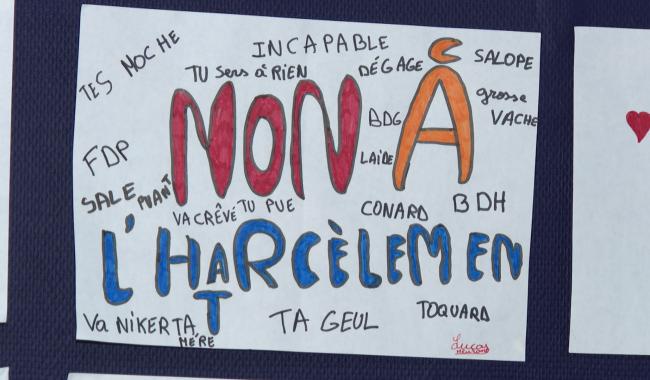 TES MOCHE
INCAPABLE
TU SERS à RIEN
DÉGAGE
SALOPE
grosse
VACHE
NON À
BDG
LAIDE
FDP
SALE PUANT
VA CRÊVÉ
TU PUE
CONARD
BDH
L'HARCÈLEMEN
T
Va NIKER TA
MÉRE
TA GEUL
TOQUARD
Lucas